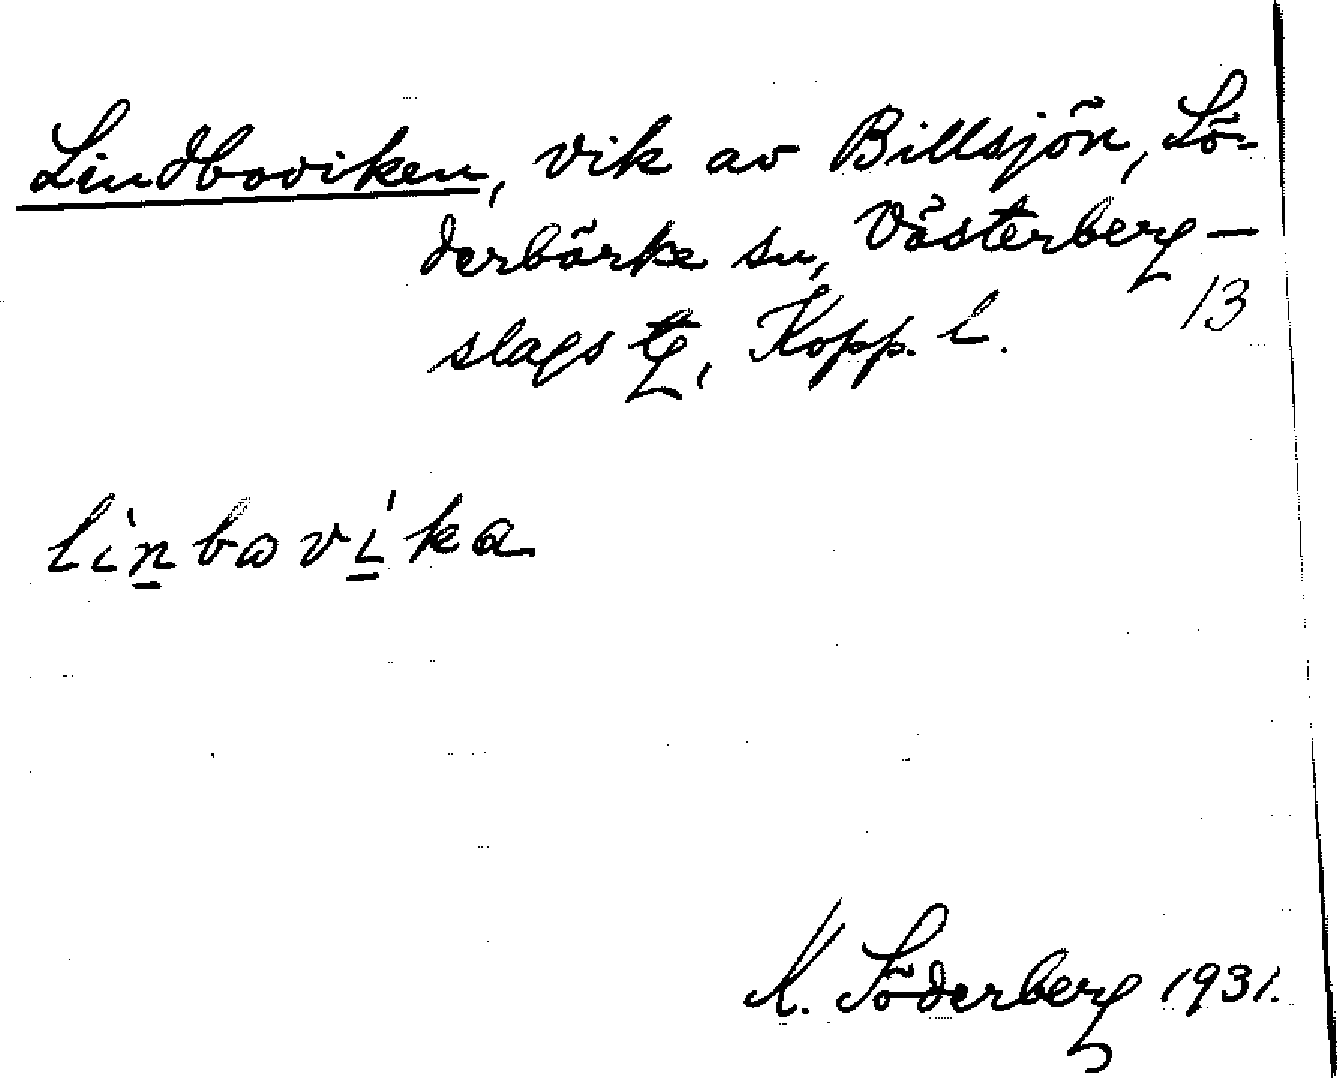 Lindboviken, vik av Billsjön, Sö-
derbärke sn, Västerberg-
slags tg, Kopp. l.
13
lìn̲bɷví̲ka
K. Söderberg 1931.